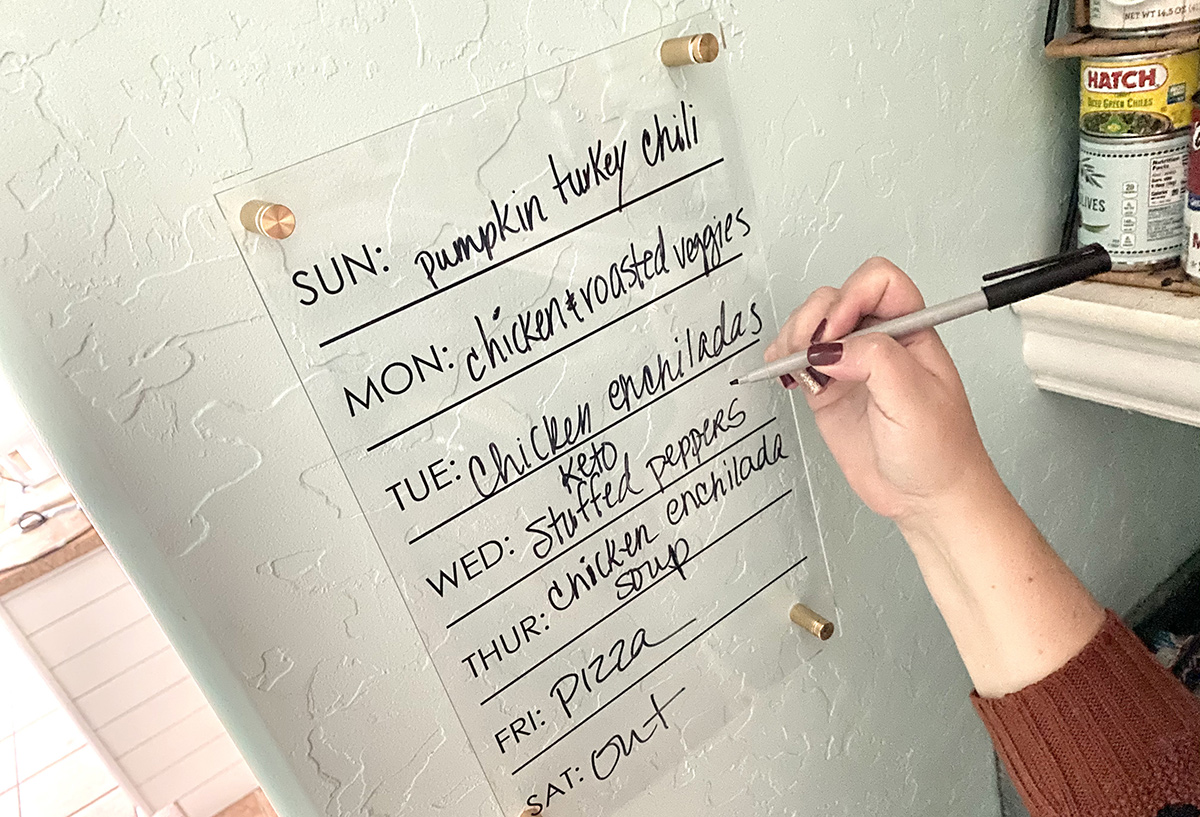 SUN: pumpkin turkey chili
MON: chicken & roasted veggies
TUE: Chicken enchiladas
keto
WED: Stuffed peppers
THUR: Chicken enchilada
soup
FRI: pizza
SAT: out
NET WT 14.5 OZ
HATCH
DICED GREEN CHILES
LIVES
Nutrition